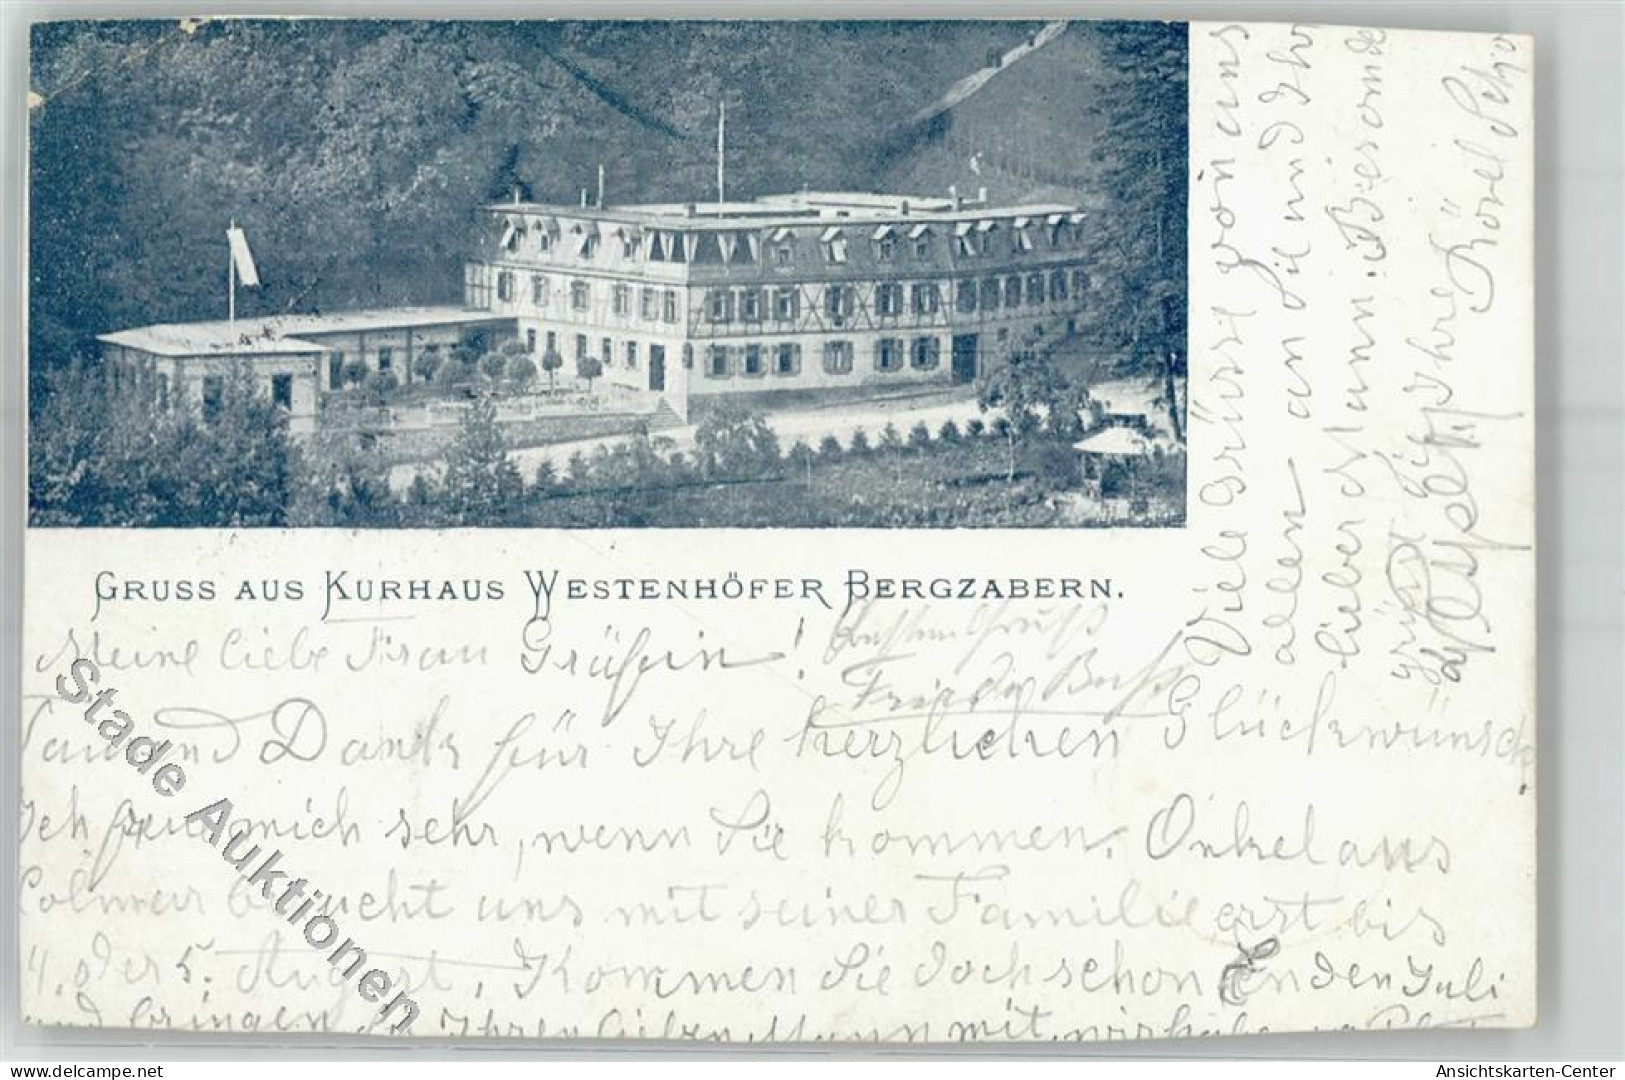 GRUSS AUS KURHAUS WESTENHÖFER BERGZABERN.
Meine liebe Frau Gräfin!
Gruß
Frieda Buß
Tausend Dank für Ihre herzlichen Glückwünsch
Ich freu mich sehr, wenn Sie kommen. Onkel aus
Colmar besucht uns mit seiner Familie erst bis
4. oder 5. August. Kommen Sie doch schon Enden Juli
und bringen Ihren lieben Mann mit, wir habe
Viele Grüsse von uns
allen an Sie und Ihr
lieber Mann.
grüsst Ihre
Stade Auktionen
delcampe.net
Ansichtskarten-Center